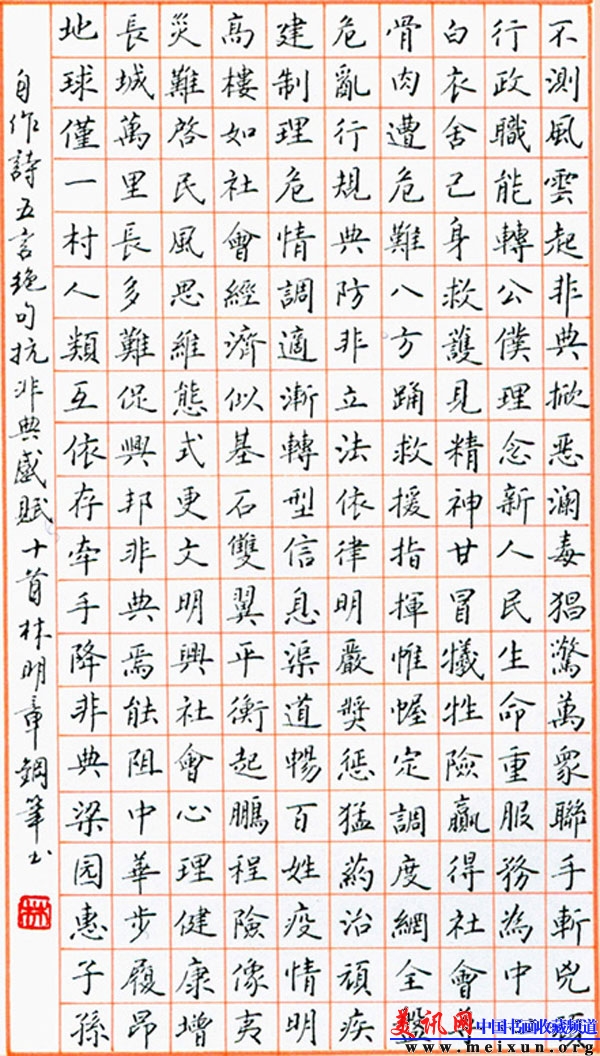 不測風雲起非典掀恶澜毒猖驚萬衆聯手斬兇頑
行政職能轉公僕理念新人民生命重服務為中
白衣舍己身救護見精神甘冒犧牲險贏得社會尊
骨肉遭危難八方踴救援指揮惟幄定調度網全
危亂行規典防非立法依律明嚴獎懲猛葯治頑疾
建制理危情調適漸轉型信息渠道暢百姓疫情明
高樓如社會經濟似基石雙翼平衡起鵬程險像夷
災難啓民風思維態式更文明興社會心理健康增
長城萬里長多難促興邦非典焉能阻中華步履昂
地球僅一村人類互依存牽手降非典梁园惠子孫
自作詩五言绝句抗非典感赋十首林明章鋼筆书
林
美讯网 中国书画收藏频道
www.meixun.org